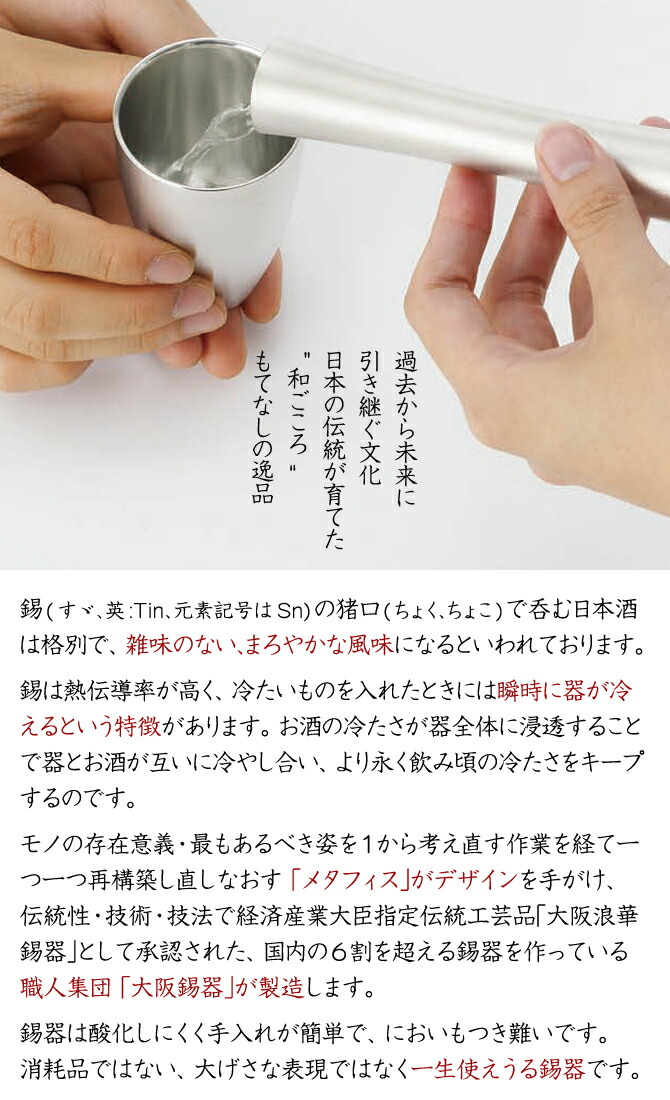 過去から未来に
引き継ぐ文化
日本の伝統が育てた
"和ごころ"
もてなしの逸品
錫(すゞ、英:Tin、元素記号はSn)の猪口(ちょく、ちょこ)で呑む日本酒
は格別で、雑味のない、まろやかな風味になるといわれております。
錫は熱伝導率が高く、冷たいものを入れたときには瞬時に器が冷
えるという特徴があります。お酒の冷たさが器全体に浸透すること
で器とお酒が互いに冷やし合い、より永く飲み頃の冷たさをキープ
するのです。
モノの存在意義・最もあるべき姿を1から考え直す作業を経て一
つ一つ再構築し直しなおす「メタフィス」がデザインを手がけ、
伝統性・技術・技法で経済産業大臣指定伝統工芸品「大阪浪華
錫器」として承認された、国内の6割を超える錫器を作っている
職人集団「大阪錫器」が製造します。
錫器は酸化しにくく手入れが簡単で、においもつき難いです。
消耗品ではない、大げさな表現ではなく一生使えうる錫器です。